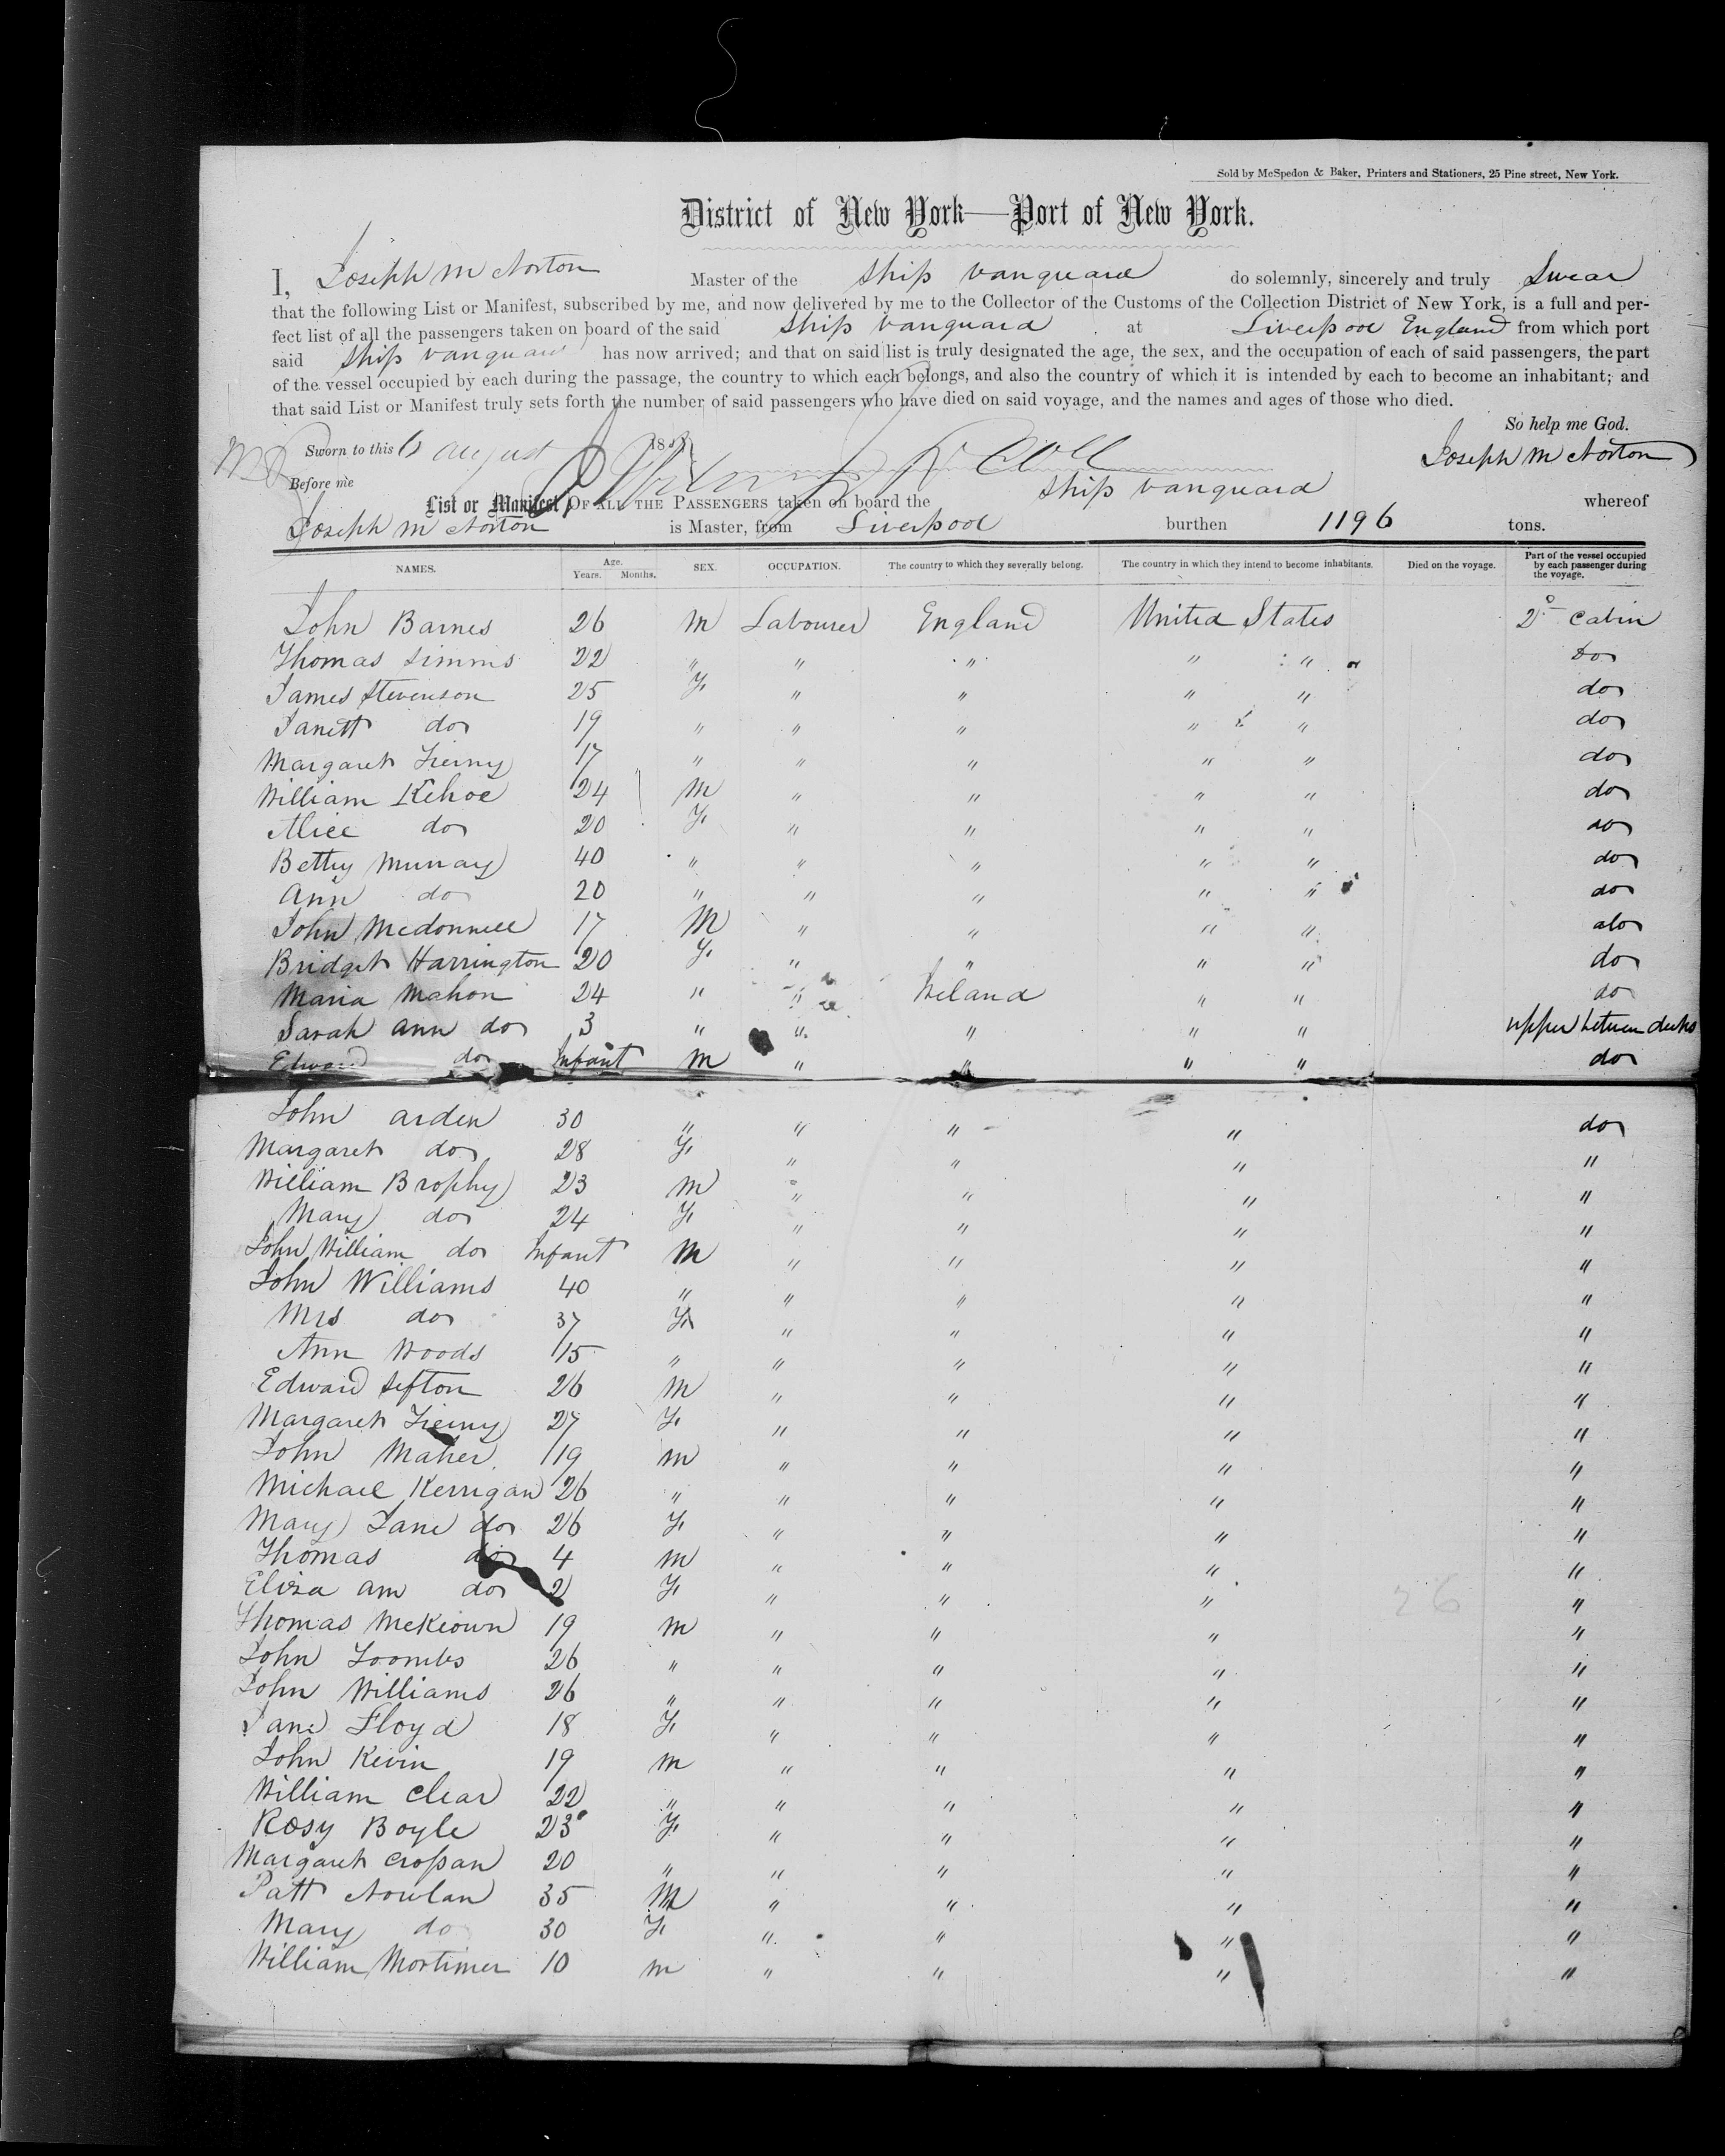 Sold by McSpedon & Baker, Printers and Stationers, 25 Pine street, New York.
District of New York—Port of New York.
I, Joseph M Norton Master of the Ship Vanguard do solemnly, sincerely and truly Swear
that the following List or Manifest, subscribed by me, and now delivered by me to the Collector of the Customs of the Collection District of New York, is a full and per-
fect list of all the passengers taken on board of the said Ship Vanguard at Liverpool England from which port
said Ship Vanguard has now arrived; and that on said list is truly designated the age, the sex, and the occupation of each of said passengers, the part
of the vessel occupied by each during the passage, the country to which each belongs, and also the country of which it is intended by each to become an inhabitant; and
that said List or Manifest truly sets forth the number of said passengers who have died on said voyage, and the names and ages of those who died.
So help me God.
Sworn to this 6 August 18 Joseph M Norton
Before me
List or Manifest OF ALL THE PASSENGERS taken on board the Ship Vanguard whereof
Joseph M Norton is Master, from Liverpool burthen 1196 tons.
NAMES. Age. Years. Months. SEX. OCCUPATION. The country to which they severally belong. The country in which they intend to become inhabitants. Died on the voyage. Part of the vessel occupied by each passenger during the voyage.
John Barnes 26 M Labourer England United States 2d Cabin
Thomas Simms 22 " " " " " do
James Stevenson 25 F " " " " do
Janett do 19 " " " " " do
Margaret Tierny 17 " " " " " do
William Kehoe 24 M " " " " do
Alice do 20 F " " " " do
Betty Murray 40 " " " " " do
Ann do 20 " " " " " do
John Mcdonnell 17 M " " " " do
Bridget Harrington 20 F " " " " do
Maria Mahon 24 " " Ireland " " do
Sarah Ann do 3 " " " " " upper between decks
Edward do Infant M " " " " do
John Arden 30 " " " " do
Margaret do 28 F " " " "
William Brophy 23 M " " " "
Mary do 24 F " " " "
John William do Infant M " " " "
John Williams 40 " " " " "
Mrs do 37 F " " " "
Ann Woods 15 " " " " "
Edward Sefton 26 M " " " "
Margaret Tierny 27 F " " " "
John Maher 19 M " " " "
Michael Kerrigan 26 " " " " "
Mary Jane do 26 F " " " "
Thomas do 4 M " " " "
Eliza Ann do 2 F " " " "
Thomas McKeown 19 M " " " "
John Toombs 26 " " " " "
John Williams 26 " " " " "
Jane Floyd 18 F " " " "
John Kevin 19 M " " " "
William Clear 22 " " " " "
Rosy Boyle 23 F " " " "
Margaret Crossan 20 " " " " "
Patt Nowlan 35 M " " " "
Mary do 30 F " " " "
William Mortimer 10 M " " " "